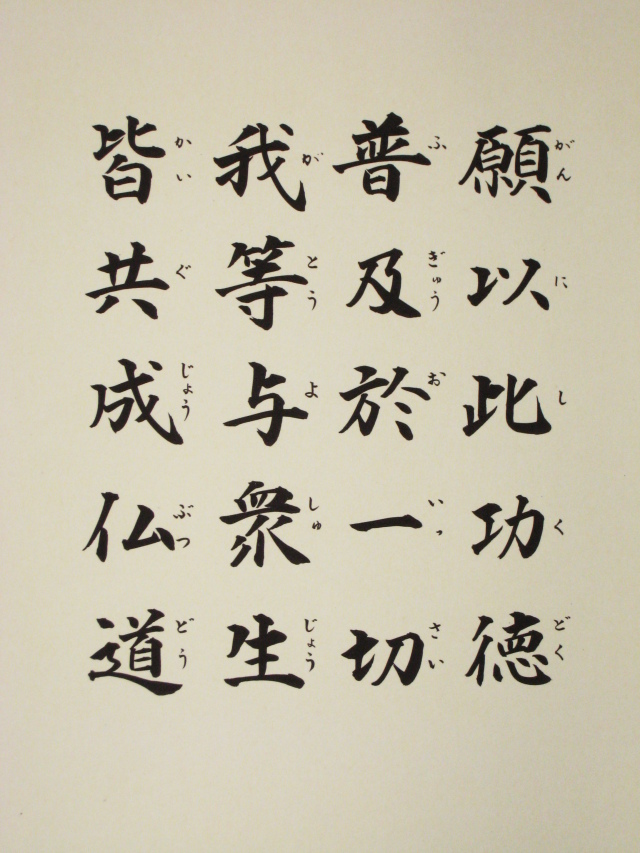 願以此功徳
がんにしくどく
普及於一切
ふぎゅうおいっさい
我等与衆生
がとうよしゅじょう
皆共成仏道
かいぐじょうぶつどう